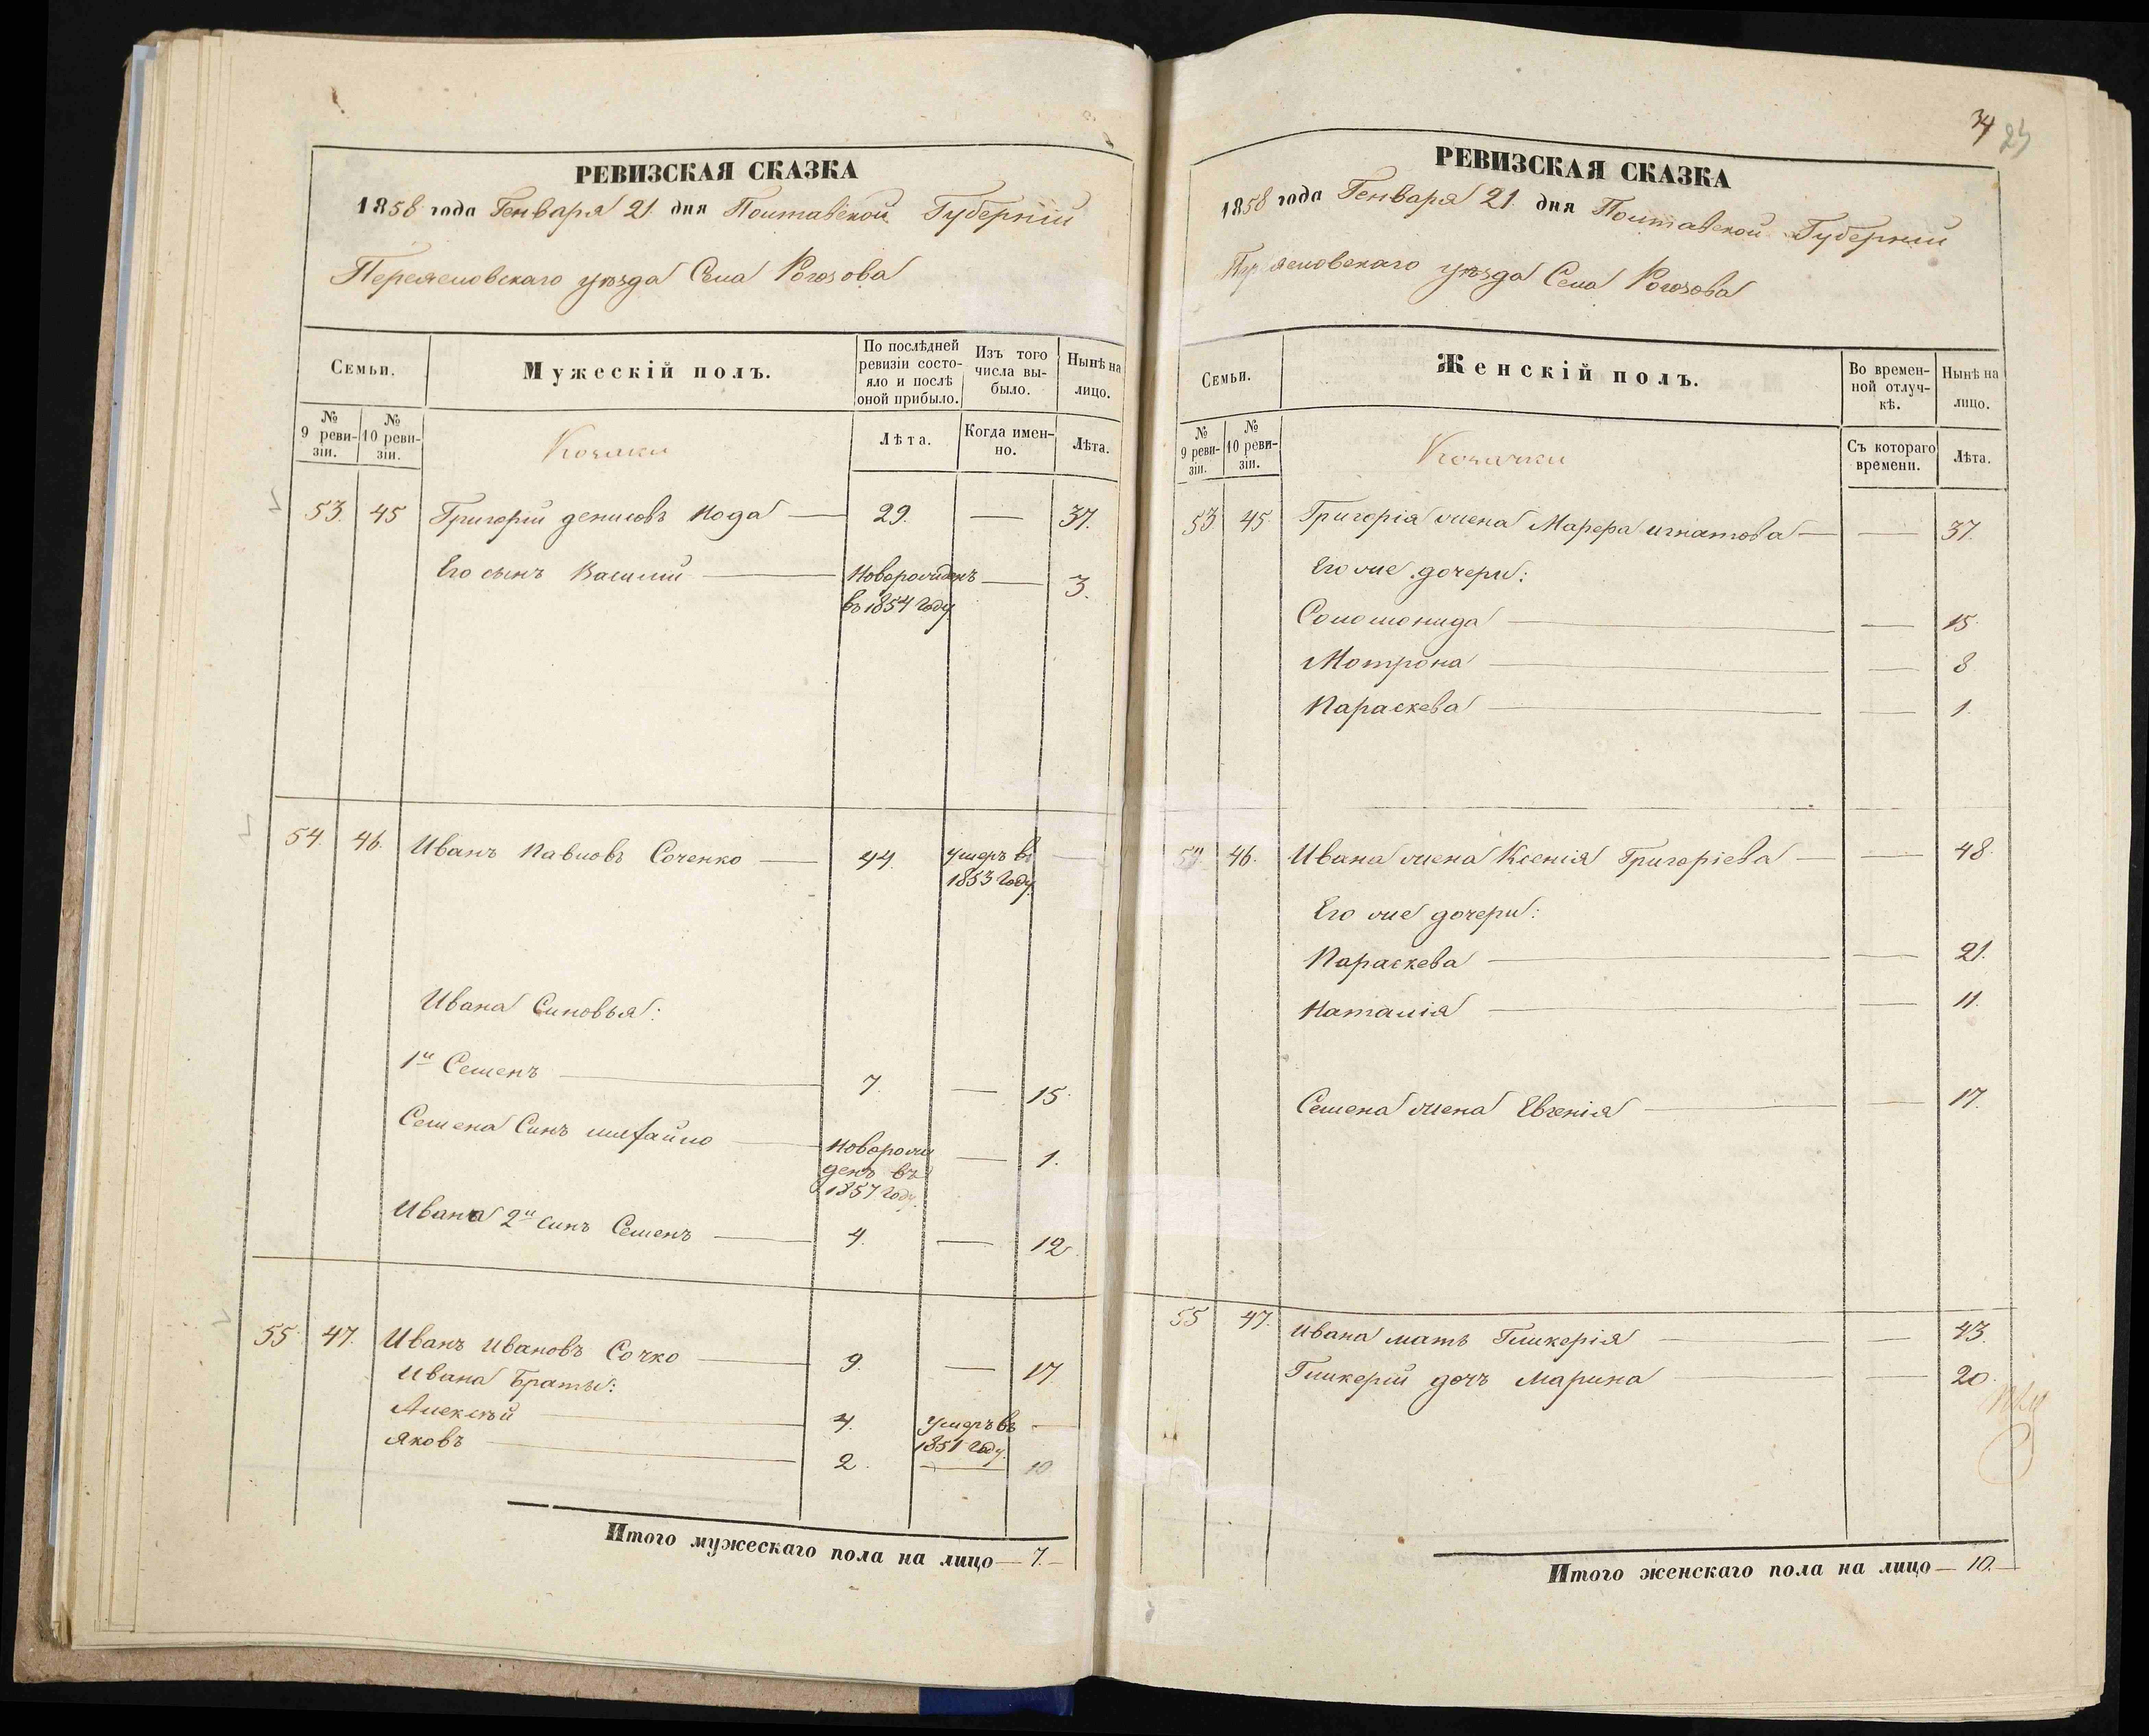 РЕВИЗСКАЯ СКАЗКА
1858 года Генваря 21. дня Полтавской Губерніи
Переясловскаго уѣзда Села Рогозова
Семьи.
Мужескій полъ.
По послѣдней ревизіи состо-
яло и послѣ
оной прибыло.
Изъ того
числа вы-
было.
Нынѣ на
лицо.
№
9 реви-
зіи.
№
10 реви-
зіи.
Козаки
Лѣта.
Когда имен-
но.
Лѣта.
53. 45 Григорій денисовъ Нода — 29. — 37.
Его сынъ Василий — Новорожденъ — 3.
въ 1854 году
54. 46. Иванъ Павловъ Соченко — 44. умеръ въ —
1853 году
Ивана Синовья:
1й Семенъ — 7. — 15.
Семена Синъ михайло — Новорож — 1.
денъ въ
1857 году.
Ивана 2й синъ Семенъ — 4. — 12.
55 47. Иванъ Ивановъ Сочко — 9. — 17
Ивана Браты:
Алексѣй — 4. Умеръ въ —
1851 году.
Яковъ — 2. — 10
Итого мужескаго пола на лицо — 7. —
34 23
РЕВИЗСКАЯ СКАЗКА
1858 года Генваря 21. дня Полтавской Губерніи
Переясловскаго уѣзда Села Рогозова
Семьи.
Женскій полъ.
Во времен-
ной отлуч-
кѣ.
Нынѣ на
лицо.
№
9 реви-
зіи.
№
10 реви-
зіи.
Козачки
Съ котораго
времени.
Лѣта.
53 45. Григорія жена Марфа игнатова — — 37.
Его же дочери:
Соломонида — — 15.
Мотрона — — 8
Параскева — — 1.
54 46. Ивана жена Ксенія Григоріева — — 48.
Его же дочери:
Параскева — — 21.
Наталія — — 11.
Семена жена Евгенія — — 17.
55 47. Ивана мать Гликерія — — 43.
Гликерій дочъ Марина — — 20.
Итого женскаго пола на лицо — 10. —